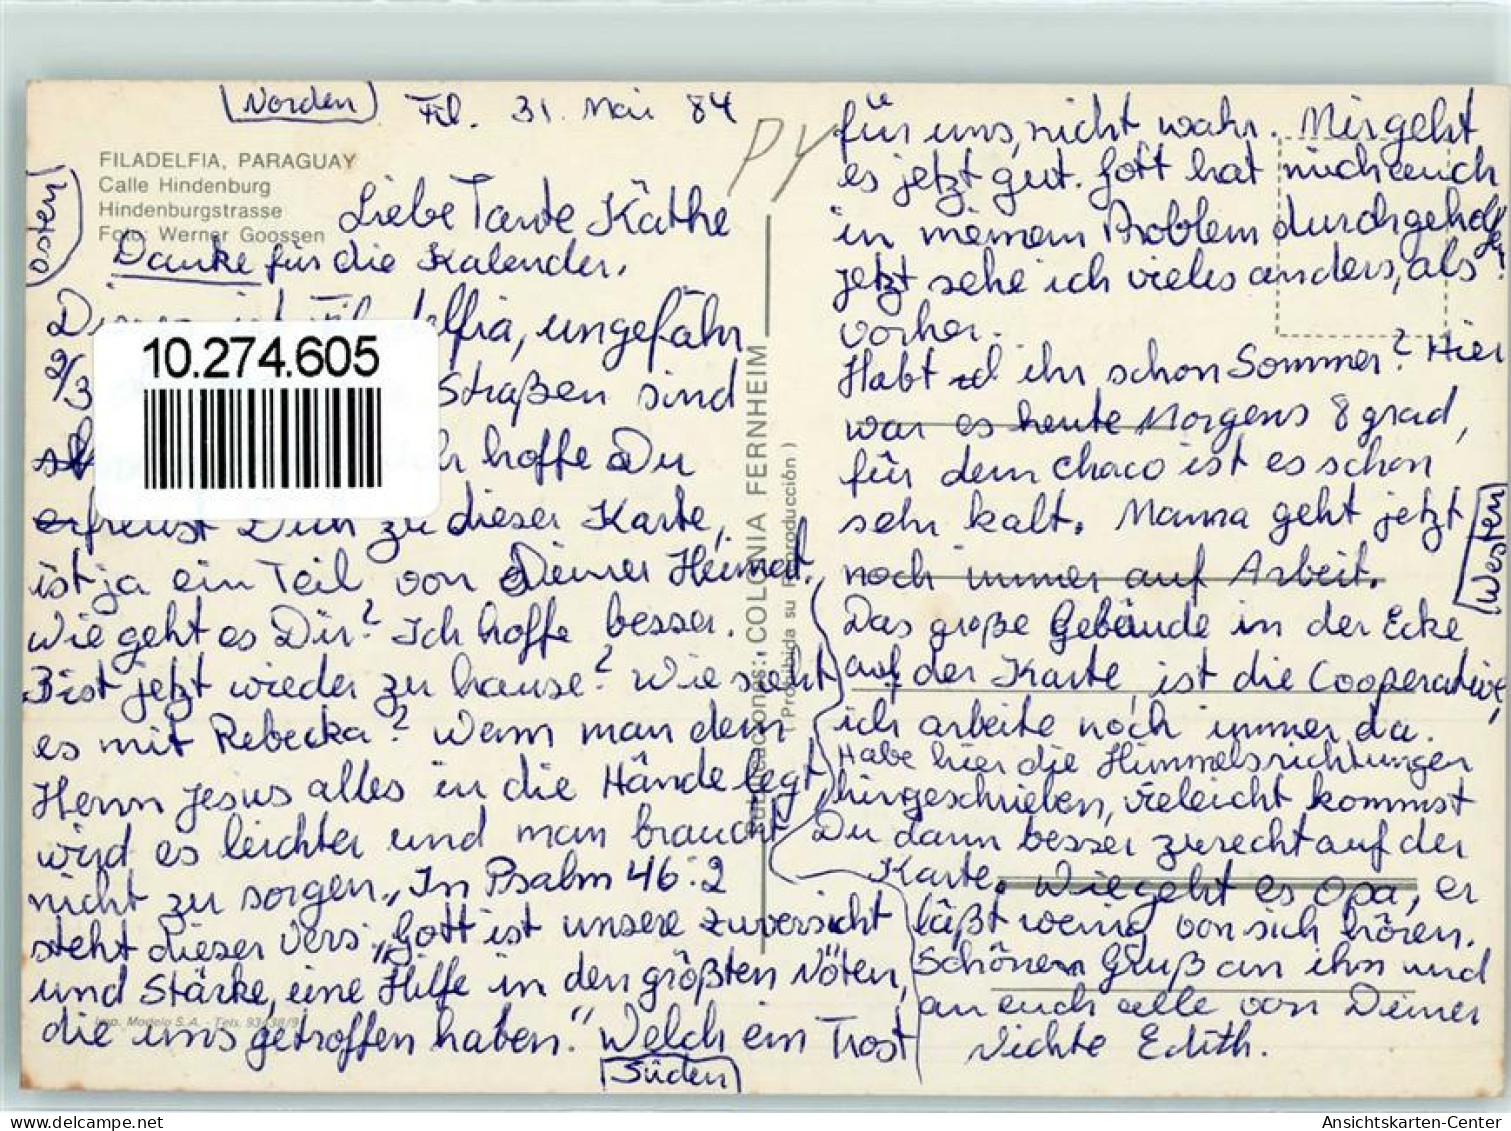 Norden
Fil. 31. Mai 84
PY
FILADELFIA, PARAGUAY
Calle Hindenburg
Hindenburgstrasse
Foto: Werner Goossen
Osten
Liebe Tante Käthe
Danke für die Kalender.
Dieses ist Filadelfia, ungefähr
2/3
Straßen sind
hoffe Du
erfreust Dich zu dieser Karte,
ist ja ein Teil von Deiner Heimat.
Wie geht es Dir? Ich hoffe besser.
Bist jetzt wieder zu hause? Wie steht
es mit Rebecka? Wenn man dem
Herrn Jesus alles in die Hände legt,
wird es leichter und man braucht
nicht zu sorgen. In Psalm 46:2
steht dieser Vers „Gott ist unsere zuversicht
und Stärke, eine Hilfe in den größten Nöten,
die uns getroffen haben." Welch ein Trost
Süden
10.274.605
Imp. Modelo S.A. - Tels.
COLONIA FERNHEIM
(Prohibida su Reproducción)
für uns, nicht wahr. Mir geht
es jetzt gut. Gott hat mich auch
in meinem Problem durchgeholfen
jetzt sehe ich vieles anders, als
vorher.
Habt ihr schon Sommer? Hier
war es heute Morgens 8 grad,
für dem Chaco ist es schon
sehr kalt. Mama geht jetzt
noch immer auf Arbeit.
Westen
Das große Gebäude in der Ecke
auf der Karte, ist die Cooperative,
ich arbeite noch immer da.
Habe hier die Himmelsrichtungen
hingeschrieben, vieleicht kommst
Du dann besser zurecht auf der
Karte. Wie geht es Opa, er
läßt wenig von sich hören.
Schönen Gruß an ihn und
an euch alle von Deiner
Nichte Edith.
Ansichtskarten-Center